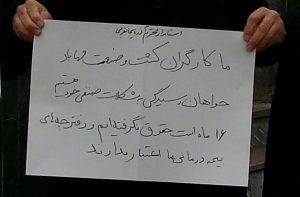 استاندار محترم آذربایجانغربی
ما کارگران کشت و صنعت مهاباد
خواهان رسیدگی به مشکلات صنفی خود هستیم
۱۶ ماه است حقوق نگرفته‌ایم و دفترچه‌های
بیمه درمانی ما اعتبار ندارند